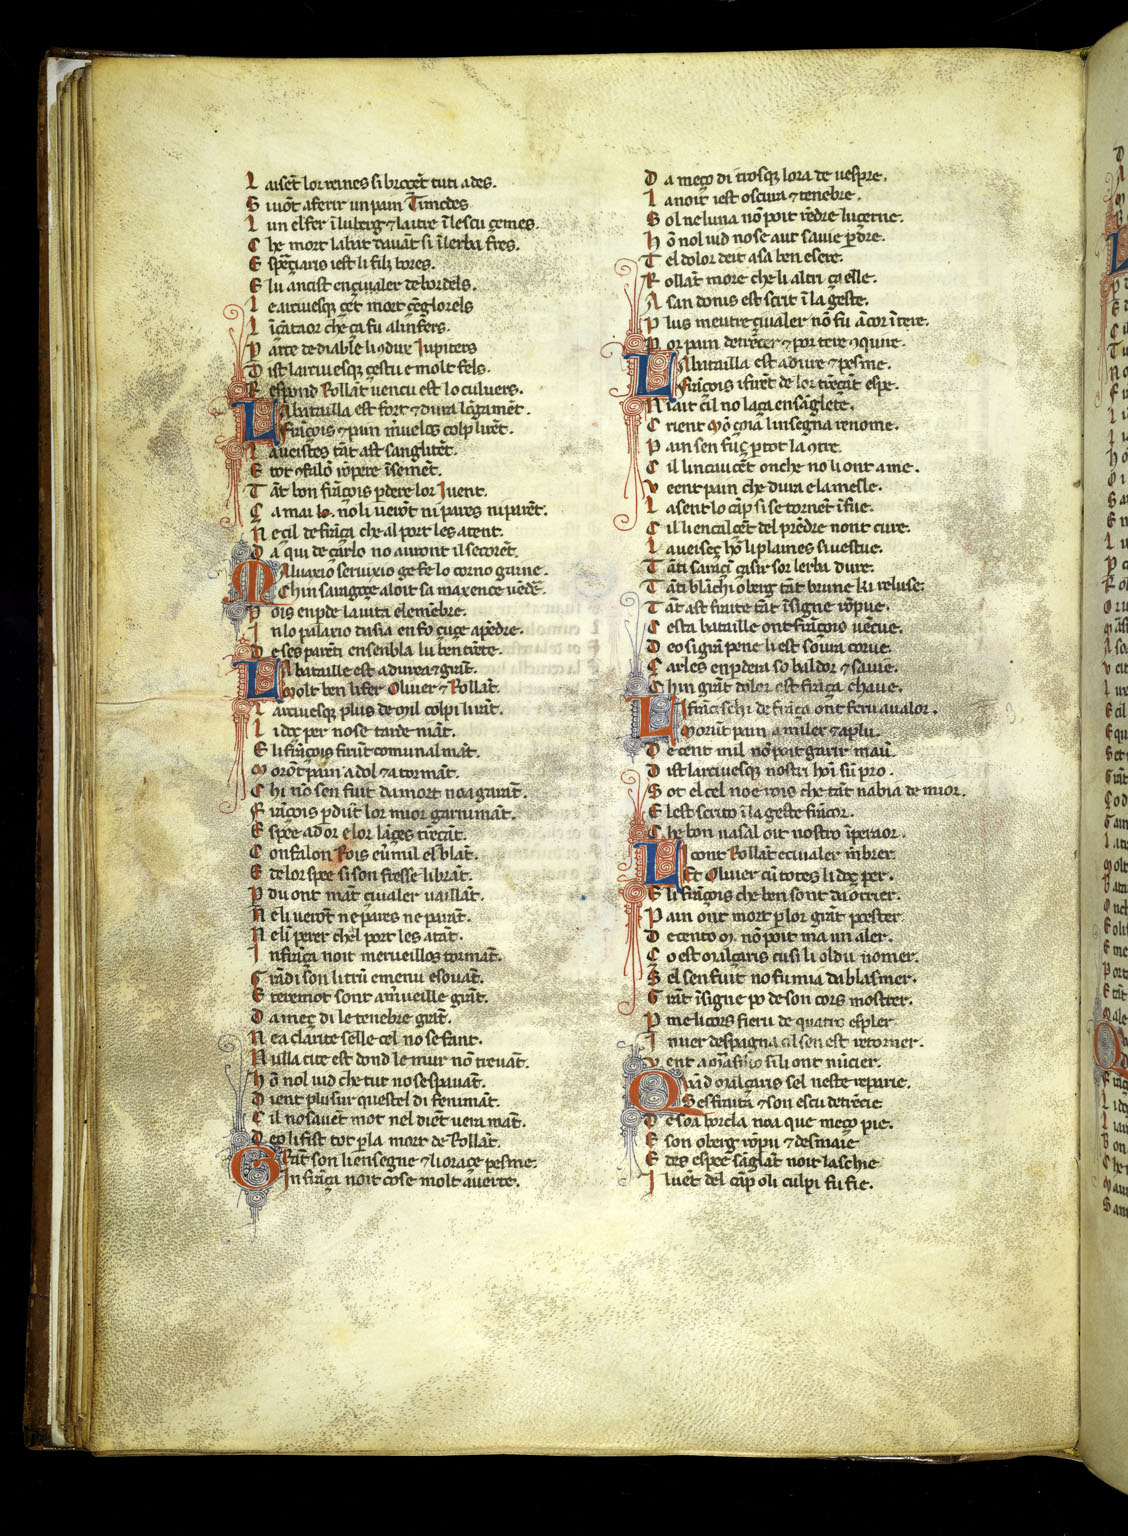 L aisēt lor reines si brocēt tuti ades.
S i uōt aferir un pain Timedes
L un el fer ī luberg ⁊ lautre ī lescu çemes.
C he mort labat dauāt si ī lerba fres.
E spēciaris iest li filz bores.
E lu ancist en çiualer de bordels.
L e arciuesqe çēt mort çēglorels
L īcātaor che ça fu alinfers.
P arte de diable li 9dure Iupiters
D ist larciuesqe çestu e molt fels.
R espond Rollāt uencu est lo culuers.
L A batailla est fort ⁊ dura lōgamēt.
Frāçois ⁊ pain m̄uelos colp liuēt.
L aueistes tāt ast sanglētēt.
E tot 9falō rōpere īsemēt.
T āt bon frāçois p̄dere lor Iuent.
Ç a mai no li uerōt ni pares ni parēt.
N e cil de frāça che al port les atent.
D a qui de çarlo no auront il secorēt.
M Aluaxio seruixio ge fe lo corno gaine.
Chin saragoçe aloit sa maxence uēdr̄.
P ois en p̄de la uita e le mēbre.
I n lo palaxio dasia en fo çuçe apēdre.
D e ses parēti ensenbla lu ben trēte.
L A bataille est adurea ⁊ grāt.
Molt ben li fer Oliuer ⁊ Rollāt.
L arciuesqe plus de mil colpi li rāt.
L i doç per no se tarde māt.
E li frāçois firūt comunal māt.
M orōt pain a dol ⁊ a tormāt.
C hi nō sen fuit da mort noa garāt.
F rāçois p̄dūt lor mior garnimāt.
E spee ador e lor lāçes trēcāt.
C onfalon Rois eū mil e blāt.
E de lor spee si son fresse li brāt.
P du ont māt çiualer uaillāt.
N e li uerōt ne pares ne parāt.
N eli perer chel port les atāt.
I nfrāça noit merueillos tormāt.
G rādi son li trū e menu e souāt.
E teremot sont a m̄ueille grāt.
D ameç di le tenebre grāt.
N e a clārite selle cel no se fant.
N ulla cite est dond le mur nō treuāt.
H ō nol uid che tut no se spauāt.
D ient plusur qu est el di fenimāt.
C il no sauēt mot nel diēt uera māt.
D eo li fist tot p̄ la mort de Rollāt.
G Rāt son li ensegne ⁊ li oraçe pesme.
In frāça noit cose molt auerte.
D a meço di trosqe lora de uespre.
L a noit iest oscura ⁊ tenebre.
S ol ne luna nō poit rēdre lucerne.
H ō nol uid no se aut sauie p̄dre.
T el dolor deit asa ben esere.
R ollāt more che li altri ça elle.
A san donis est scrit ī la geste.
P lus meutre çiualer nō fu ācor ī tere.
P or pain detrēcer ⁊ por tere 9quire.
L A batailla est adure ⁊ pesme.
Frāçois i firēt de lor trēcāt espe.
N i sait cil no laça ensāglete.
C rient mō çoia linsegna renome.
P ain sen fuiç p̄ tot la 9tre.
C il lincaucēt onche no li ont ame.
V eent pain che dura e la mesle.
L asent lo cāp si se tornēt ī fue.
C il li encalcēt del prēdre nont cure.
L aueiseç hō li plaines si uestue.
T āti saraçī çasir sor lerba dure.
T āti blāchi oberg tāt brune ki reluse.
T āt ast fraite tāt īsigne rōpue.
C esta bataille ont frāçois uēcue.
D eo si grā pene li est soura corue.
C arles en p̄dera so baldor ⁊ sauie.
C hin grāt dolor est frāça chaue.
L I francischi de frāça ont feru aualor.
Morūt pain a miler ⁊ aplu.
D e cent mil nō poit garir mau.
D ist larciuesqe nostri hōi sū pro.
S ot el cel no e rois che tāt nabia de mior.
E l est scrito ī la geste frācor.
C he bon uasal oit nostro īperaor.
L I cont Rollāt e ciualer mēbrer
Et Oliuer cū totes li doç per.
E li frāçois che ben sont da otrier.
P ain ont mort p̄ lor grāt poester
D e cento m. nō poit ma un aler.
C o est malçaris cusi li oldu nomer.
S el sen fuit no fu mia da blasmer.
G rāt īsigne po de son cors mostrer.
P me li cors fieru de quatir espler
I nuer despagna cil sen est retorner.
V ent a marsilio si li ont nūcier.
Q Vād malçaris sel neste repairie.
Sesfraita ⁊ son escu detrēcie
D e soa borcla noa que meço pie.
E son oberg rōpu ⁊ desmaie
E des espee sāglāt noit laschie
I l uēt del cāp o li culpi fu fie.